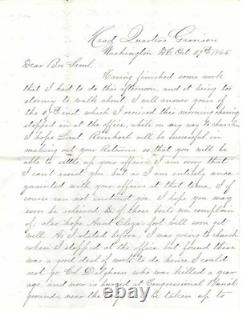 Head Quarters Garrison
Washington DC Oct 29th 1865
Dear Bro Saml.
Having finished some
work that I had to do this afternoon, and it being too
stormy to walk about I will answer yours of
the 2nd inst which I received this morning having
stopped in at the office, while on my way to church
I hope Lieut Reinhard will be successful in
making out your Returns so that you will be
able to settle up your affairs I am sorry that
I can't assist you but as I am entirely unac-
quainted with your affairs at that time, I of
course can not do it I hope you may
soon be returned So if those boils are complain
of also hope that Eliza's foot will soon get
well. As I stated before, I was going to
church when I stopped at the office but found there
was a good deal of work to do hence I could
not go Col Dahlgren who was killed a year
ago, and now is buried at Congressional Burial
grounds near the to be taken up to